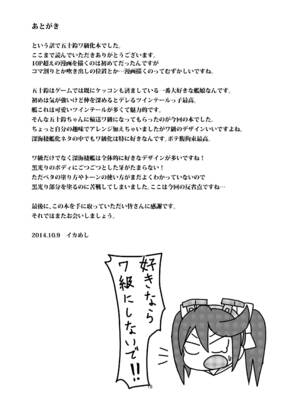 あとがき
という訳で五十鈴ワ級化本でした。
ここまで読んでいただきありがとうございます。
10P超えの漫画を描くのは初めてだったんですが
コマ割りとか吹き出しの位置とか…漫画描くのってむずかしいですね。
五十鈴はゲームでは既にケッコンも済ましている一番大好きな艦娘なんです。
初めは気が強いけど仲を深めるとデレるツインテールっ子最高。
艦これは可愛いツインテールが多くて魅力的です。
そんな五十鈴ちゃんに輸送ワ級になってもらったのが今回の本でした。
ちょっと自分の趣味でアレンジ加えちゃいましたがワ級のデザインいいですよね。
深海棲艦化ネタの中でもワ級化は特に好きなんです。ボテ腹拘束最高。
ワ級だけでなく深海棲艦は全体的に好きなデザインが多いですね！
黒光りのボディにごつごつとした牙がたまらない！
ただベタの塗り方やトーンの使い方がまだよくわかっていないので
黒光り部分を塗るのに苦戦してしまいました。ここは今回の反省点ですね…
最後に、この本を手に取っていただいた皆さんに感謝です。
それではまたお会いしましょう。
2014.10.9　イカめし
好きなら
ワ級に
しないで!!